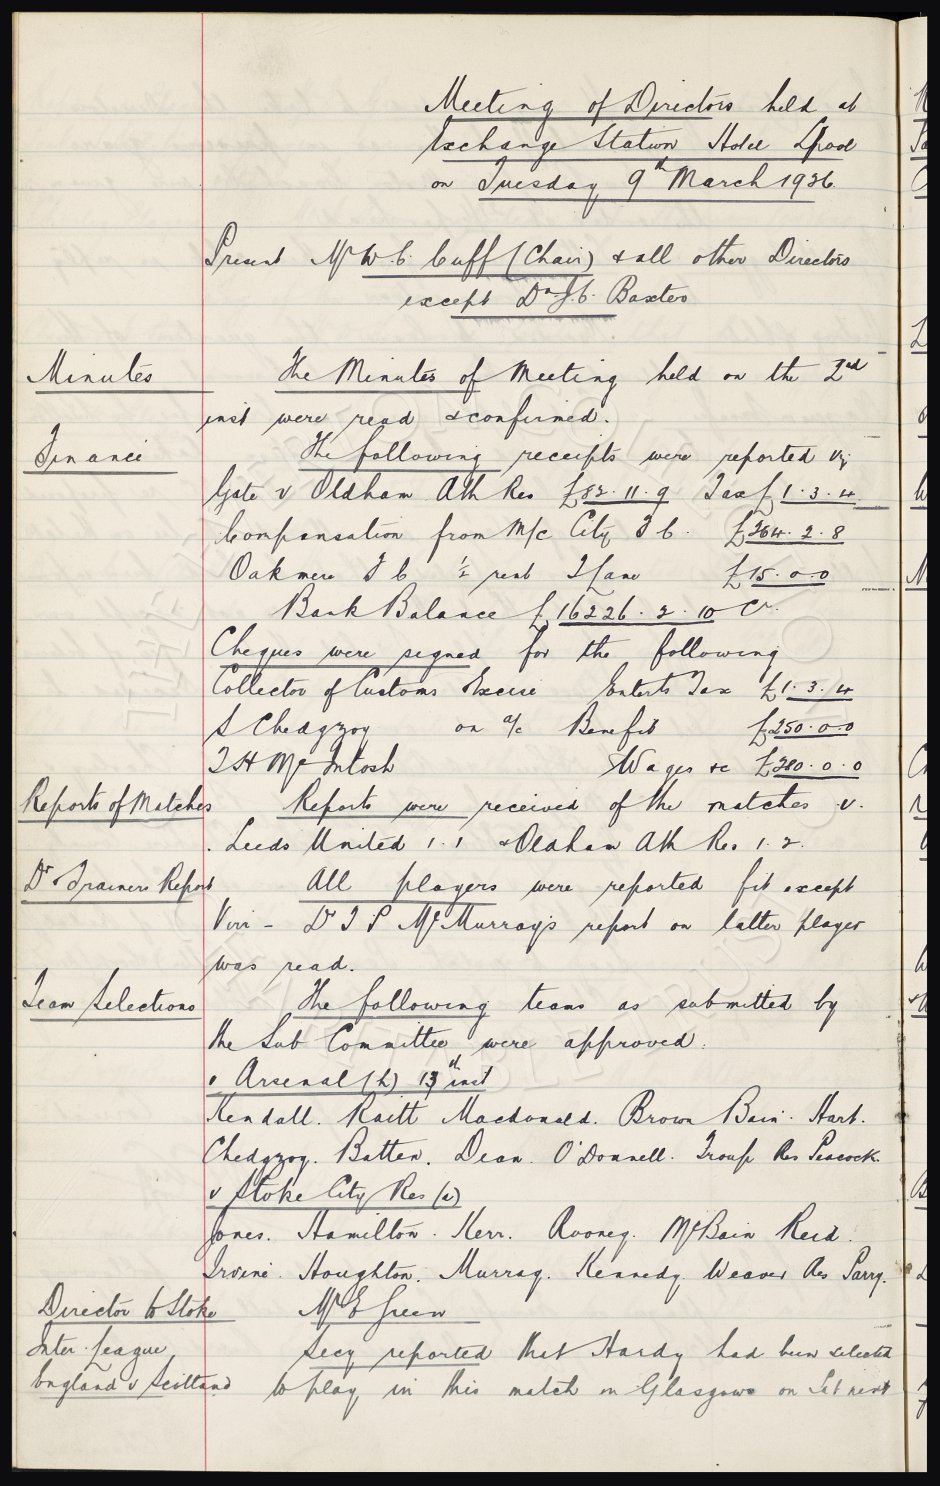 Meeting of Directors held at
Exchange Station Hotel Lpool
on Tuesday 9th March 1926.
Present Mr W.C. Cuff (Chair) & all other Directors
except Dr J.C. Baxter
Minutes The Minutes of Meeting held on the 2nd
inst were read & confirmed.
Finance The following receipts were reported viz
Gate v Oldham Ath Res £82.11.9 Tax £1.3.4
Compensation from M/c City F C. £264.2.8
Oakmere F C ½ rent Lane £15.0.0
Bank Balance £16226.2.10 Cr.
Cheques were signed for the following
Collector of Customs Excise Enterts Tax £1.3.4
S Chedgzoy on a/c Benefit £250.0.0
T H McIntosh Wages &c £280.0.0
Reports of Matches Reports were received of the matches v.
Leeds United 1.1 & Oldham Ath Res 1.2.
Dr & Trainers Report All players were reported fit except
Virr - Dr T P McMurray's report on latter player
was read.
Team Selections The following teams as submitted by
the Sub Committee were approved.
v Arsenal (h) 13th inst
Kendall. Raitt Macdonald. Brown Bain. Hart.
Chedgzoy. Batten. Dean. O'Donnell. Troup Res Peacock.
v Stoke City Res (a)
Jones. Hamilton. Kerr. Rooney. McBain Reid.
Irvine. Houghton. Murray. Kennedy. Weaver Res Parry.
Director to Stoke Mr E Green
Inter-League Secy reported that Hardy had been selected
England v Scotland to play in this match in Glasgow on Sat next